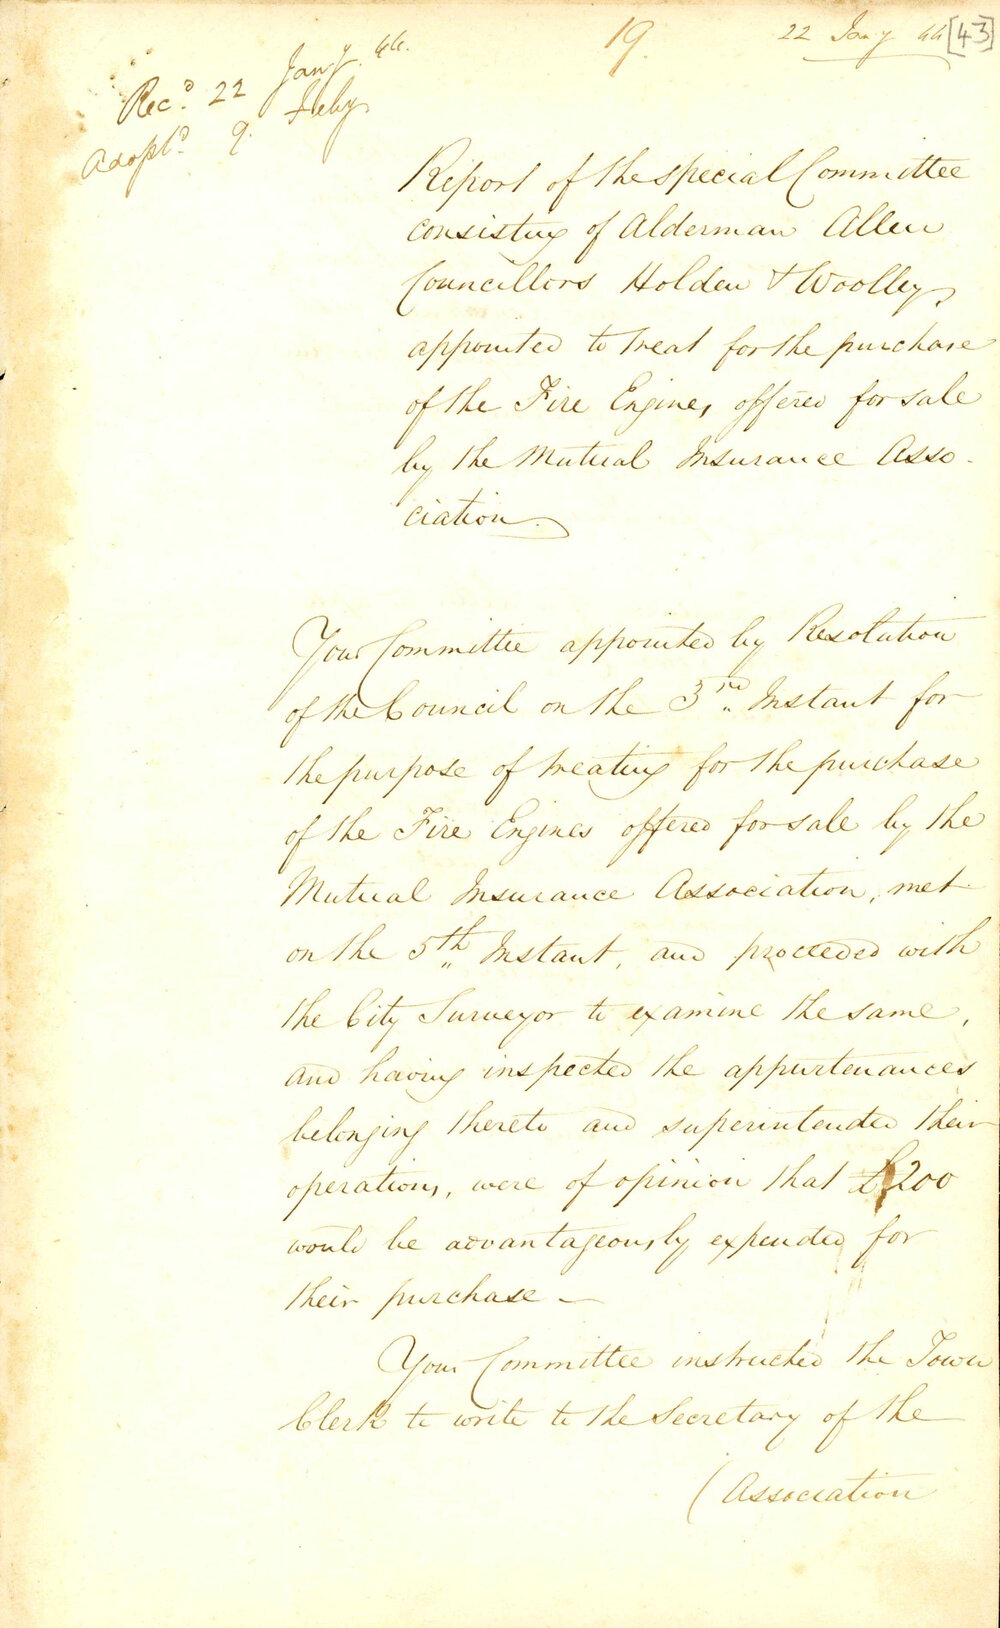 19.
22 Jany 44 [43]
Recd. 22 Jany. 44.
Adoptd. 9. Feby
Report of the special Committee
consisting of Alderman Allen
Councillors Holden & Woolley,
appointed to treat for the purchase
of the Fire Engines, offered for sale
by the Mutual Insurance Asso-
ciation.
Your Committee appointed by Resolution
of the Council on the 3rd. Instant for
the purpose of treating for the purchase
of the Fire Engines offered for sale by the
Mutual Insurance Association, met
on the 5th Instant, and proceeded with
the City Surveyor to examine the same,
and having inspected the appurtenances
belonging thereto and superintended their
operations, were of opinion that £200
would be advantageously expended for
their purchase —
Your Committee instructed the Town
Clerk to write to the Secretary of the
(Association